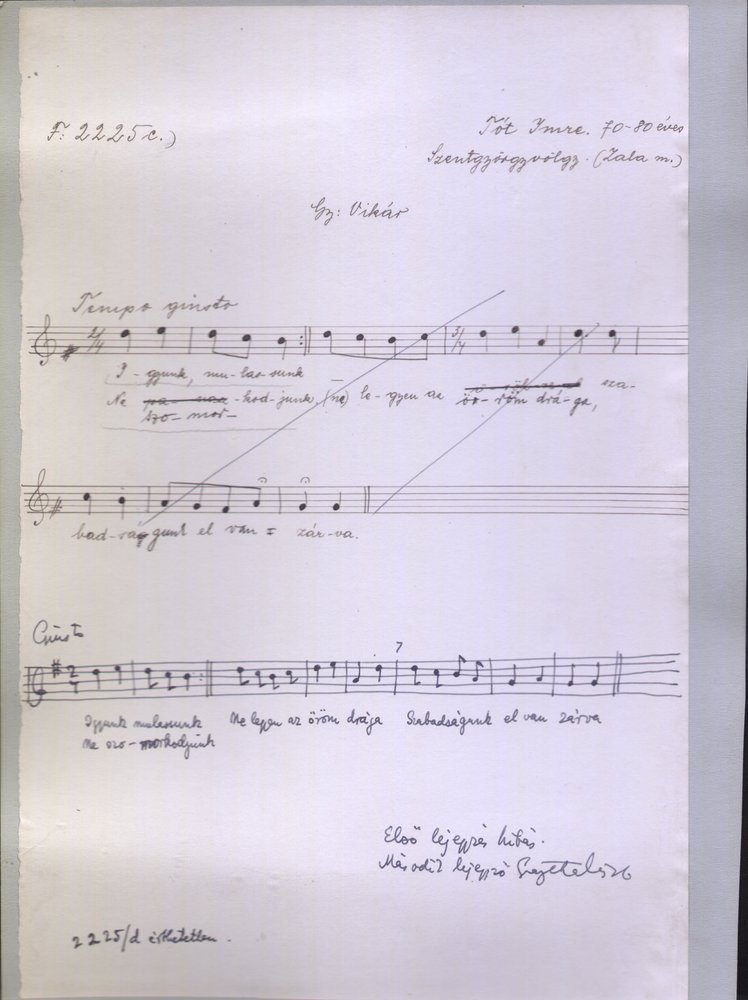 F: 2225c.)
Tót Imre. 70-80 éves
Szentgyörgyvölgy. (Zala m.)
Gy: Vikár
Tempo giusto
2/4 3/4
I - gyunk, mu-las-sunk
Ne -kod-junk, (ne) le-gyen az ö-röm drá-ga, sza-
szo-mor-
bad-ságunk el van zár-va.
Giusto
2/4 7
Igyunk mulassunk Ne legyen az öröm drága Szabadságunk el van zárva
Ne szo-morkodjunk
Első lejegyzés hibás.
Második lejegyző
2225/d érthetetlen.